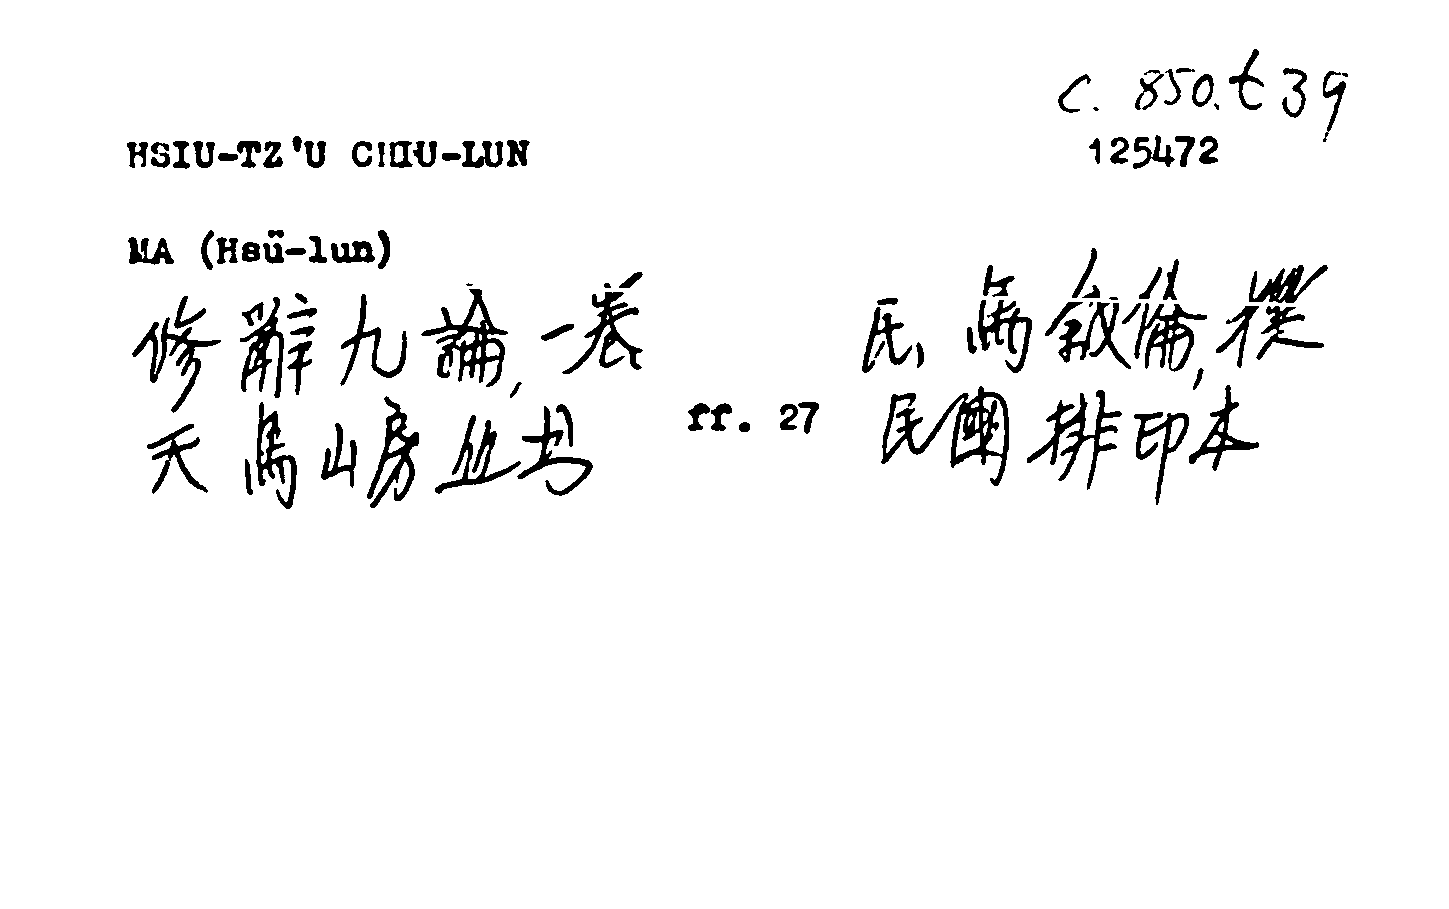 c. 850.t39
HSIU-TZ'U CHIU-LUN
125472
MA (Hsü-lun)
修辭九論, 一卷
民, 馬敘倫, 撰
天馬山房
ff. 27
民國排印本